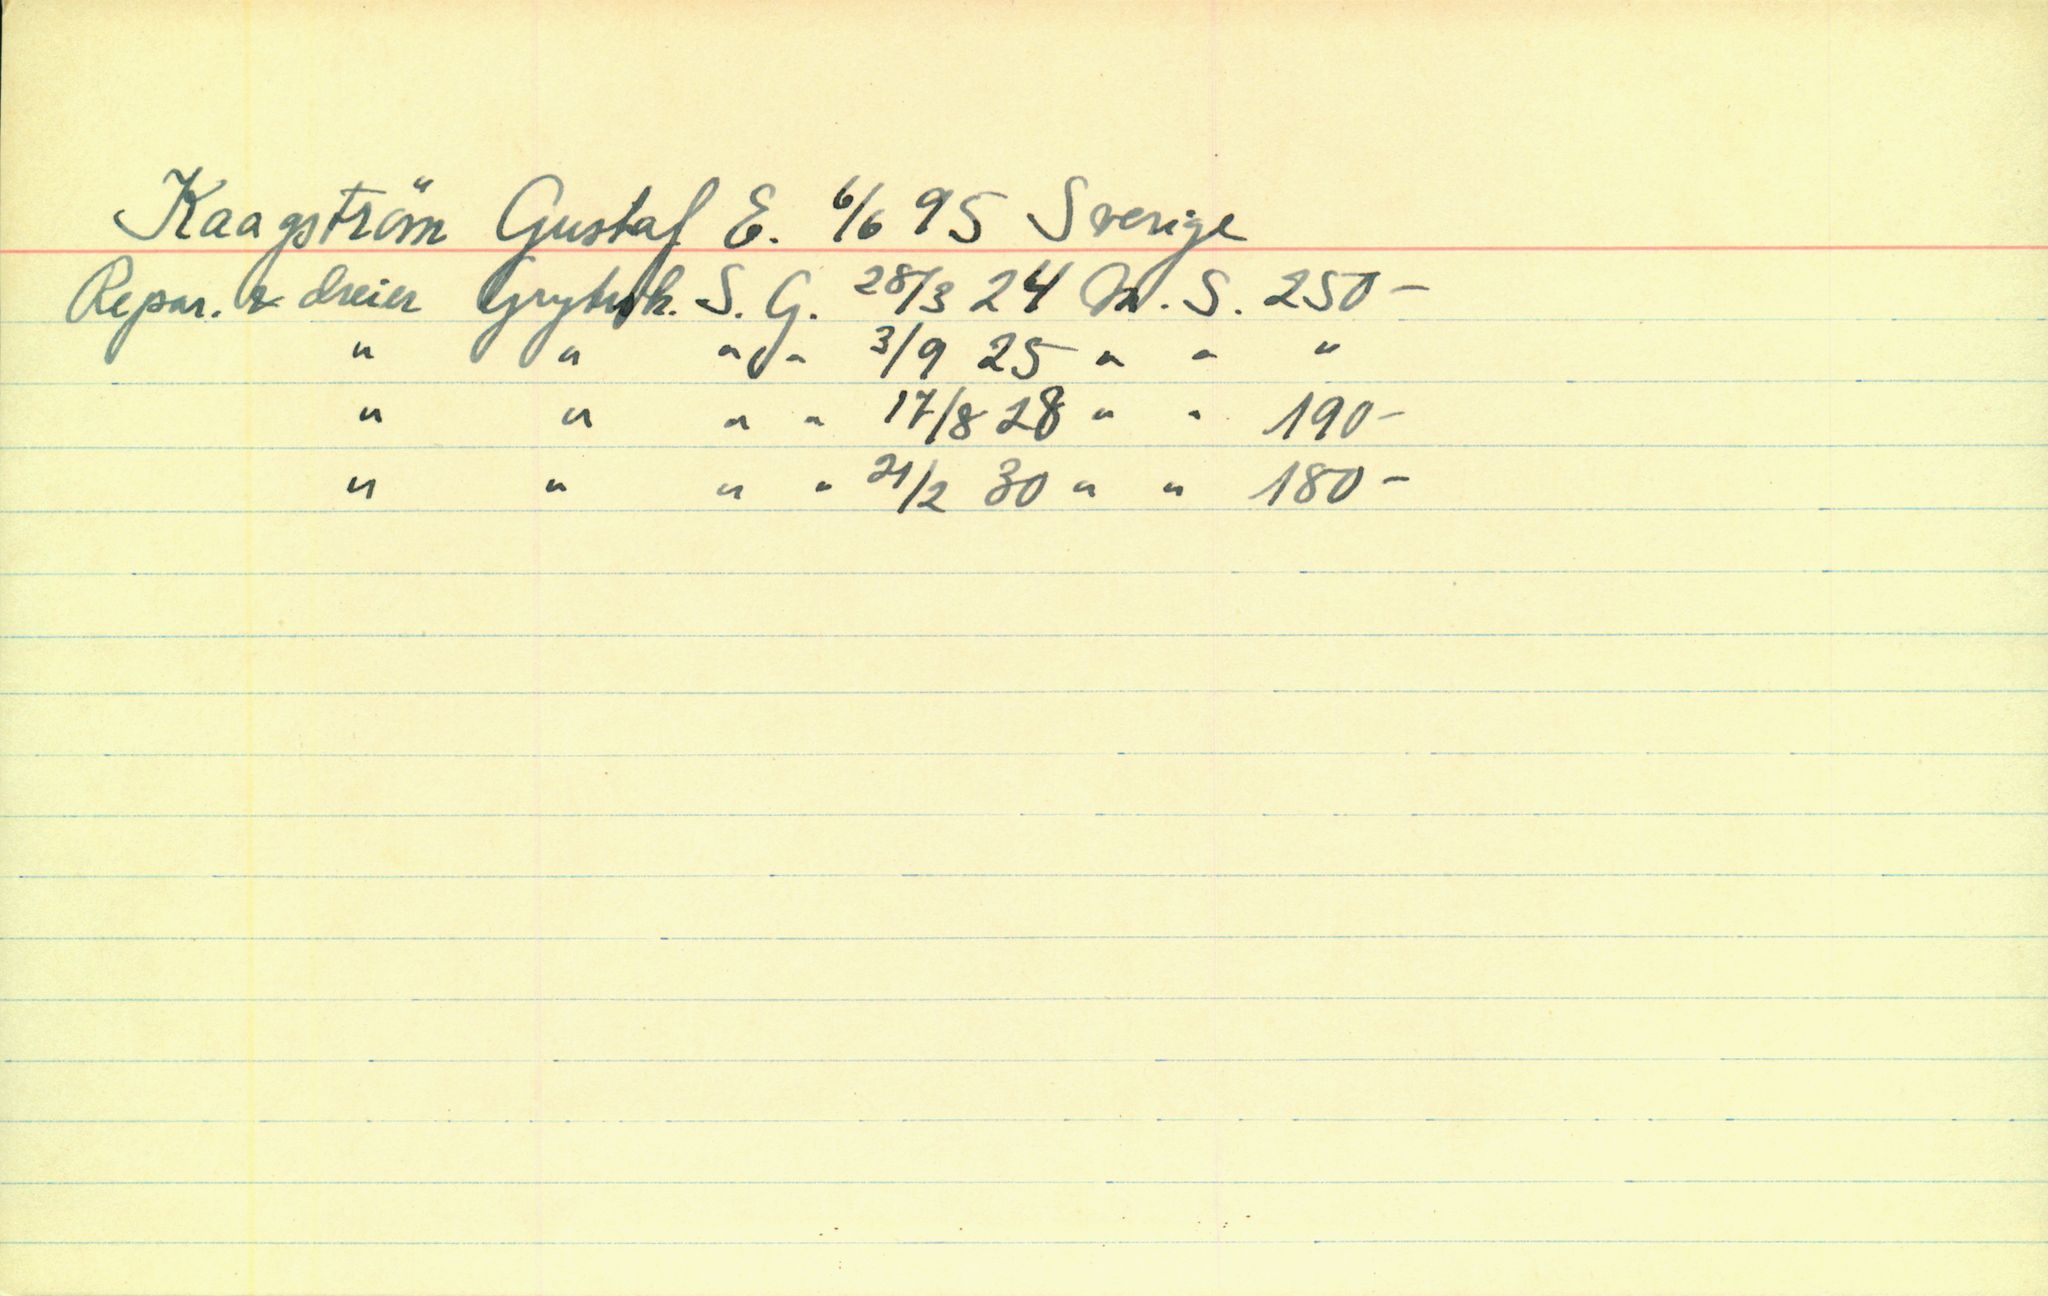 Kaagström Gustaf E. 6/6 95 Sverige
Repar. & dreier Grytvik. S. G. 28/3 24 M. S. 250-
" " " " 3/9 25 " " "
" " " " 17/8 28 " " 190-
" " " " 21/2 30 " " 180-